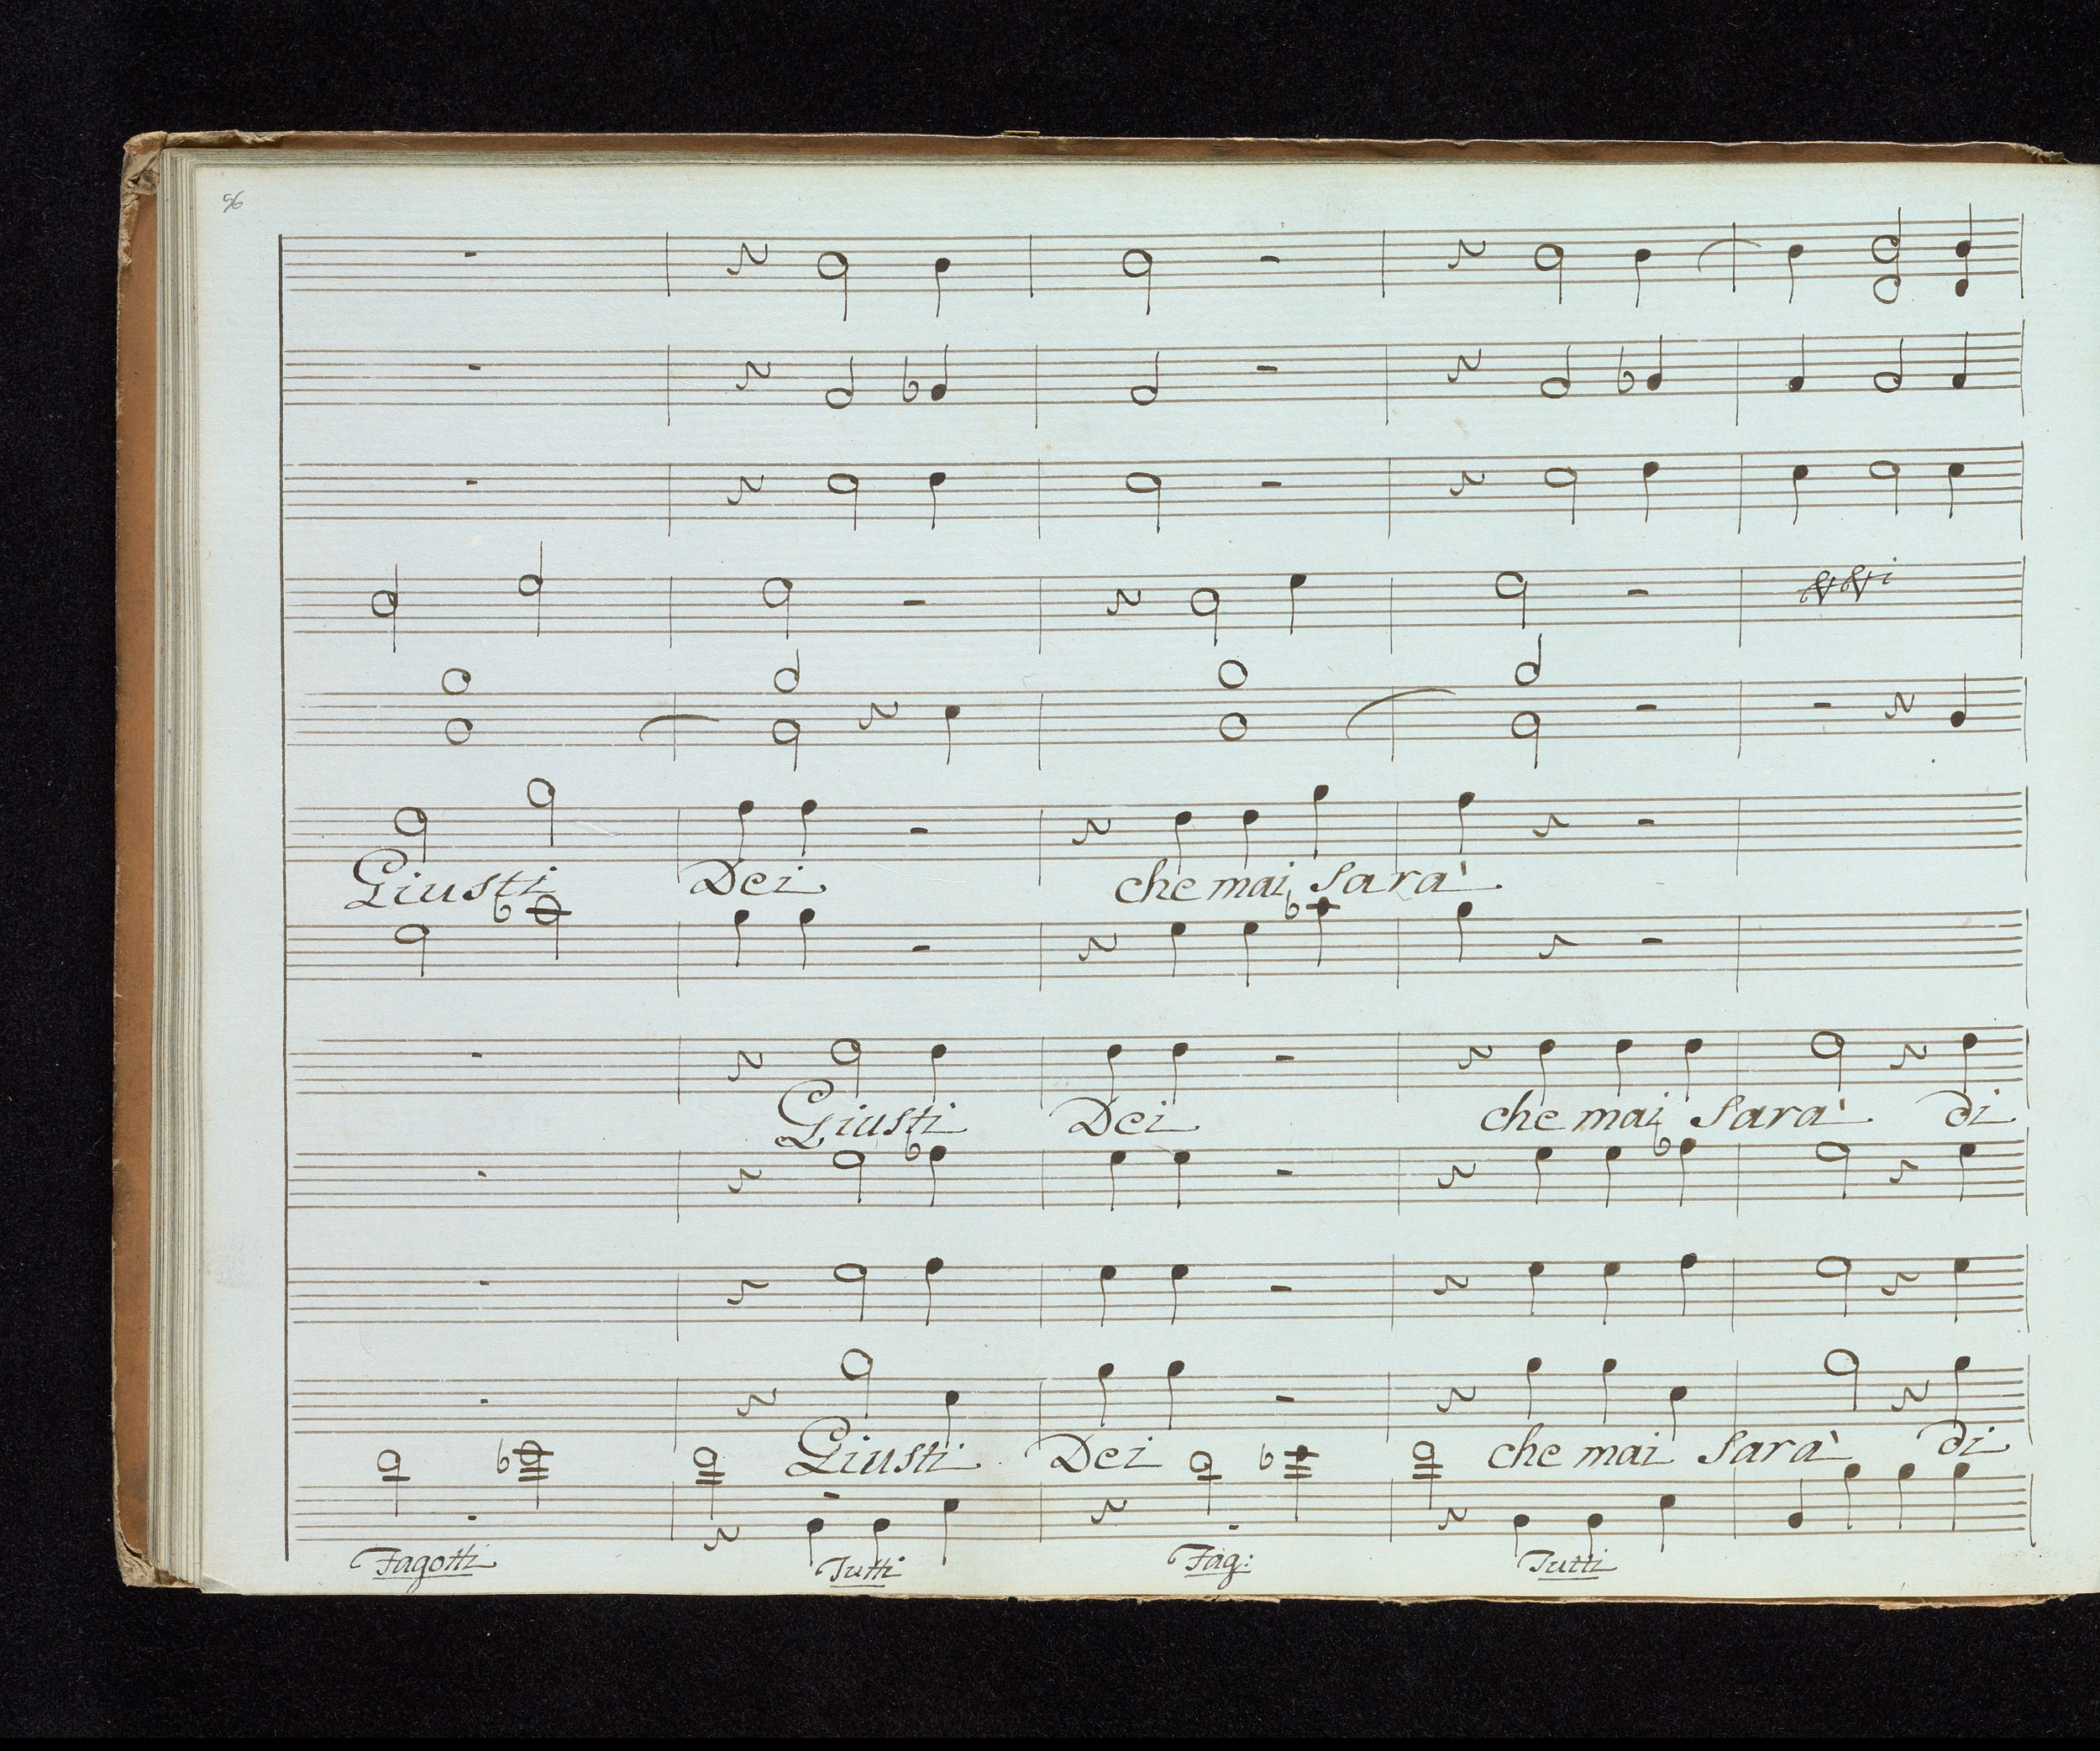 56
Giusti Dei che mai sarà
Giusti Dei che mai sarà di
Giusti Dei che mai sarà di
Fagotti Tutti Fag: Tutti